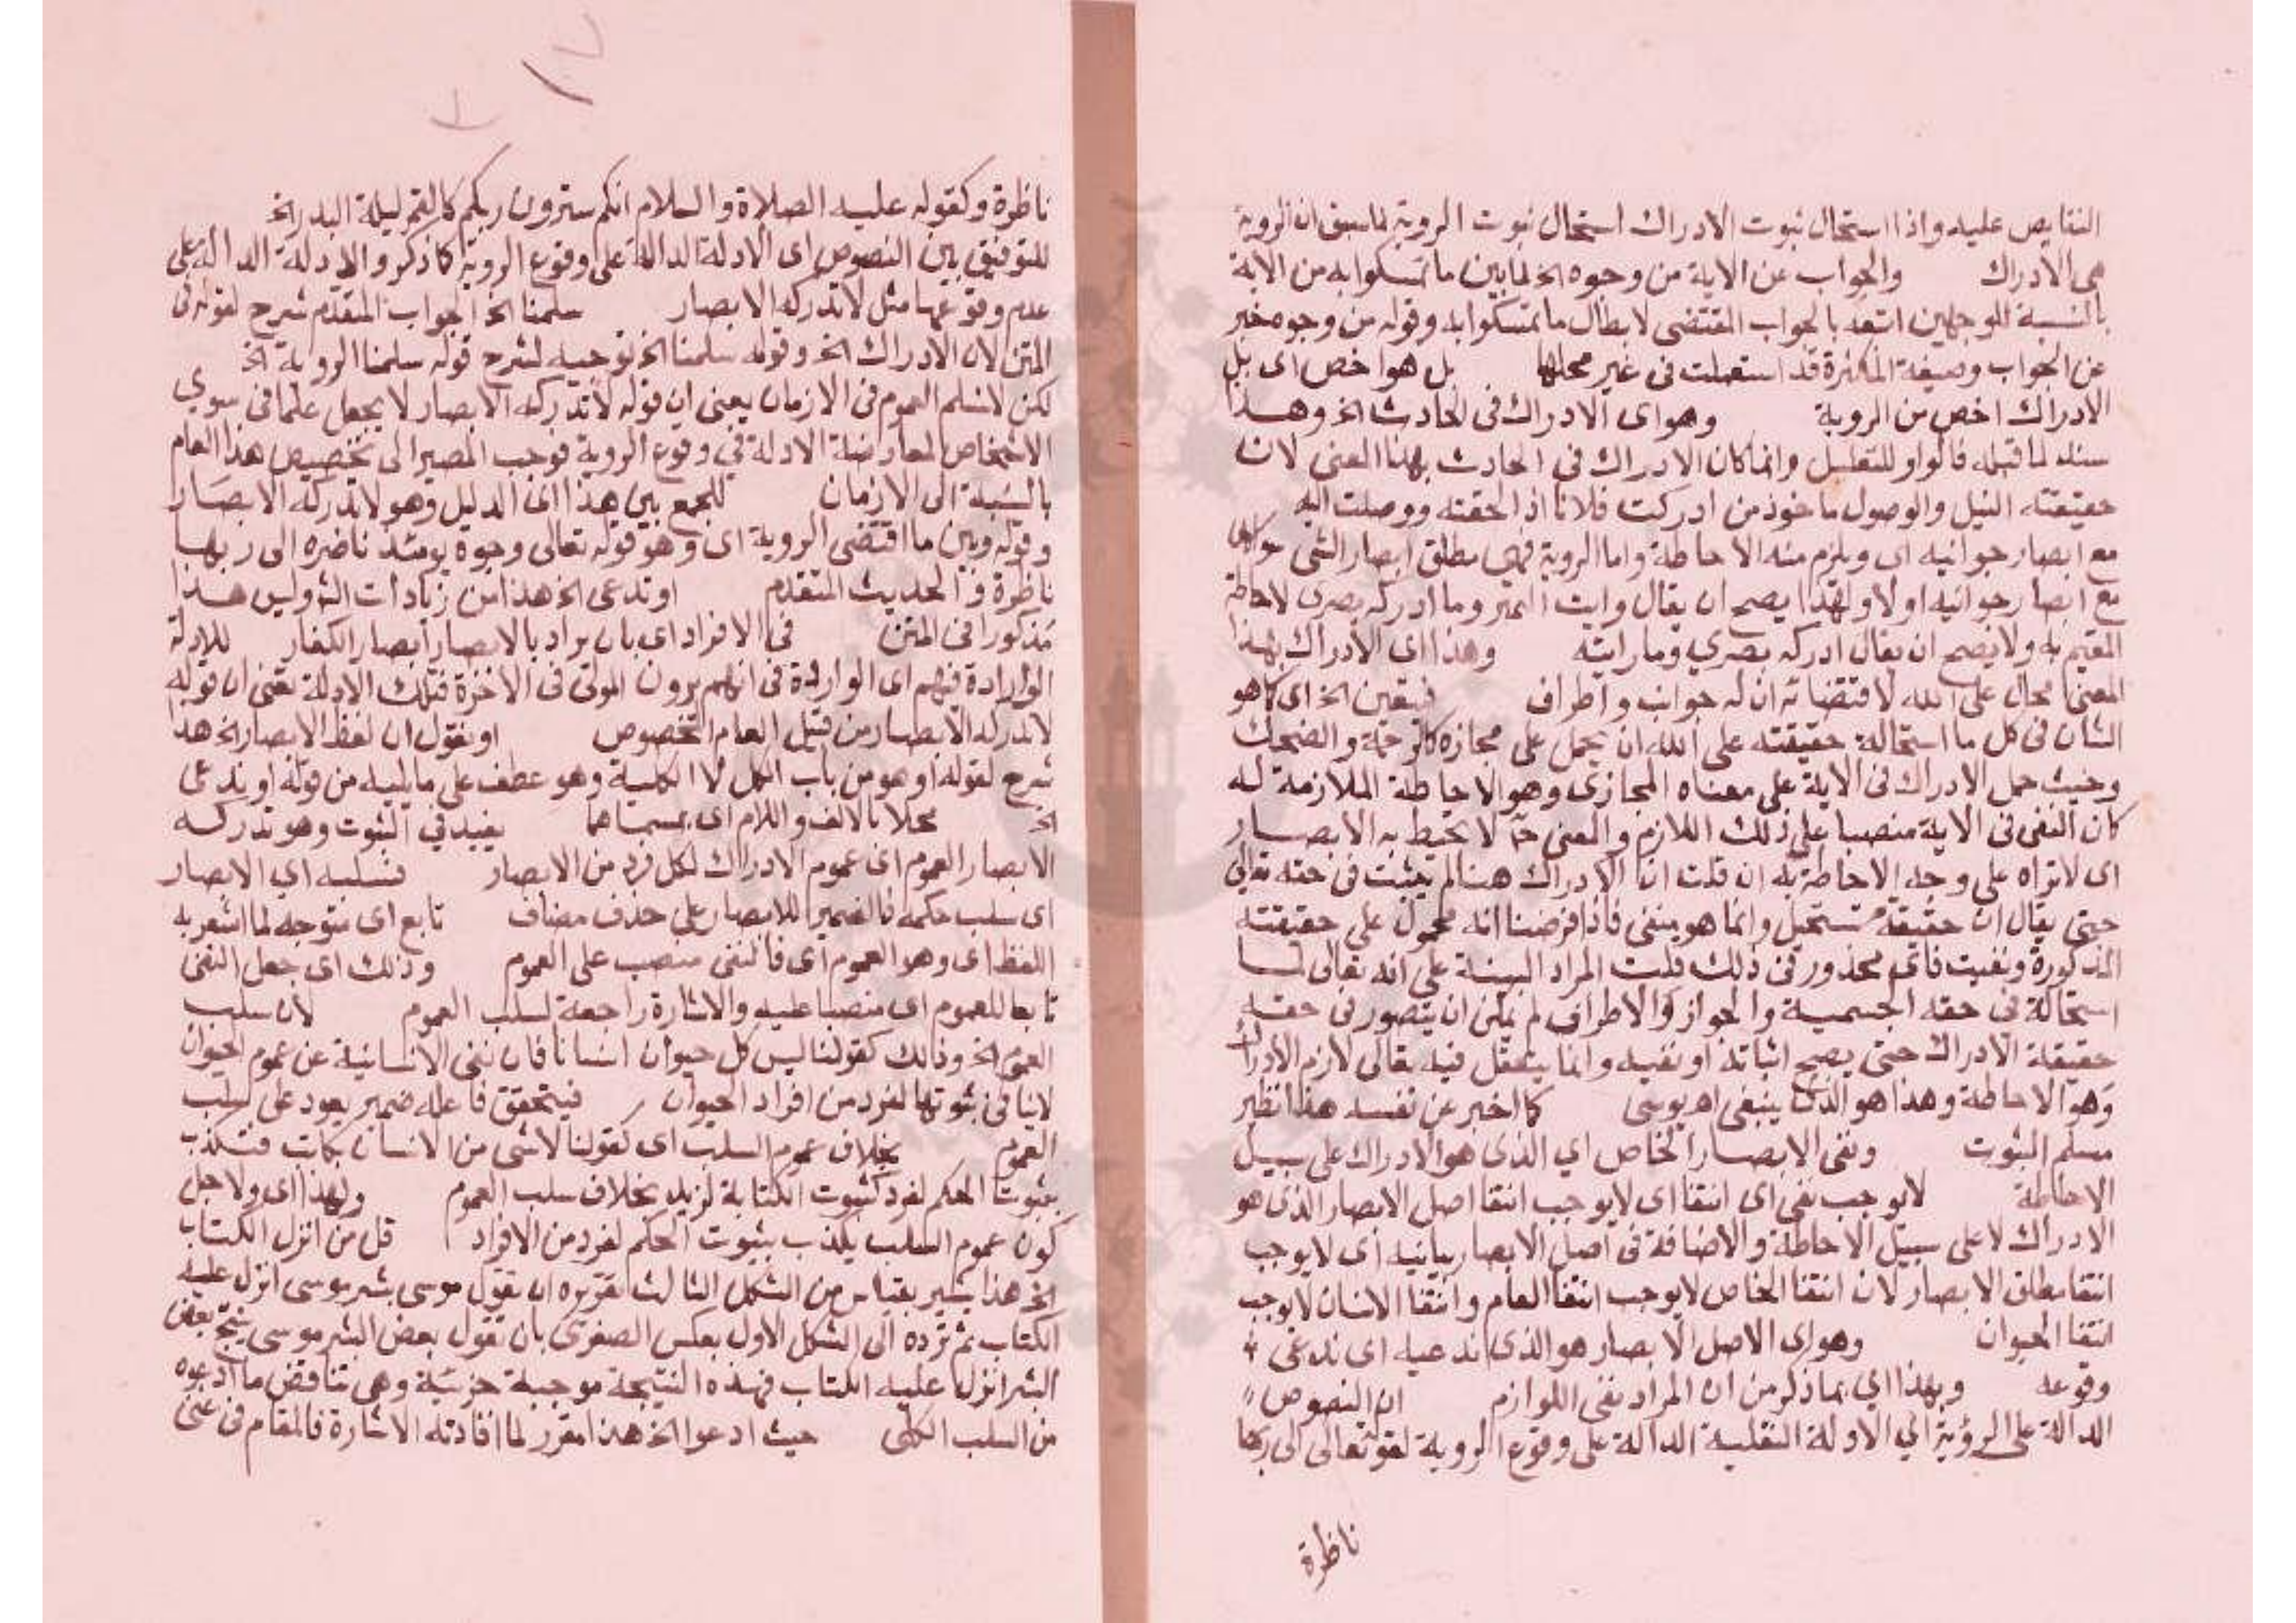 النقايص عليه واذا استحال ثبوت الادراك استحال ثبوت الروية لما سبق ان الروية
هى الادراك والجواب عن الاية من وجوه الخ لما بين ما تمسكوا به من الاية
بالنسبة للوجهين اتبعه بالجواب المقتضى لابطال ما تمسكوا به وقوله من وجوه خبر
عن الجواب وصيغة الكثرة قد استعملت فى غير محلها بل هو اخص اى بل
الادراك اخص من الروية وهو اى الادراك فى الحادث الخ وهذا
سند لما قبله فالواو للتعليل وانما كان الادراك فى الحادث بهذا المعنى لان
حقيقته النيل والوصول ماخوذ من ادركت فلانا اذا لحقته ووصلت اليه
مع ابصار جوانبه اى ويلزم منه الاحاطة واما الروية فهى مطلق ابصار الشى سوا كان
مع ابصار جوانبه او لا ولهذا يصح ان يقال رايت القمر وما ادركه بصرى لاحاطة
الغيم به ولا يصح ان يقال ادركه بصري وما رايته وهذا اى الادراك بهذا
المعنى محال على الله لاقتضائه ان له جوانب واطراف فيتعين الخ اى كما هو
الشان فى كل ما استحالة حقيقته على الله ان يحمل على مجازه كالرحمة والضحك
وحيث حمل الادراك فى الاية على معناه المجازى وهو الاحاطة الملازمة له
كان النفى فى الاية منصبا على ذلك اللازم والمعنى ح لا تحيط به الابصار
اى لا تراه على وجه الاحاطة به ان قلت ان الادراك هنا لم يثبت فى حقه تعالى
حتى يقال ان حقيقته مستحيل وانما هو منفى فاذا فرضنا انه محمول على حقيقته
المذكورة ونفيت فاى محذور فى ذلك قلت المراد البينة على انه تعالى لما
استحالة فى حقه الجسمية والجواز والاطراف لم يمكن ان يتصور فى حقه
حقيقة الادراك حتى يصح اثباته او نفيه وانما يتعقل فيه تعالى لازم الادراك
وهو الاحاطة وهذا هو الذى ينبغى اه يوسى كما اخبر عن نفسه هذا نظير
مسلم الثبوت ونفى الابصار الخاص اي الذى هو الادراك على سبيل
الاحاطة لا يوجب نفى اى انتفا اى لا يوجب انتفا اصل الابصار الذى هو
الادراك لا على سبيل الاحاطة والاضافة فى اصل الابصار بيانيه اى لا يوجب
انتفا مطلق الابصار لان انتفا الخاص لا يوجب انتفا العام وانتفا الانسان لا يوجب
انتفا الحيوان وهو اى الاصل الابصار هو الذى ندعيه اى ندعى
وقوعه وبهذا اي بما ذكر من ان المراد نفى اللوازم ان النصوص
الدالة على الرؤية اي الادلة النقلية الدالة على وقوع الروية لقوله تعالى الى ربها
ناظرة
ناظرة وكقوله عليه الصلاة والسلام انكم سترون ربكم كالقمر ليلة البدر الخ
للتوفيق بين النصوص اى الادلة الدالة على وقوع الروية كما ذكر والادلة الدالة على
عدم وقوعها مثل لا تدركه الابصار سلمنا الخ الجواب المتقدم شرح لقوله فى
المتن لان الادراك الخ وقوله سلمنا الخ توجيه لشرح قوله سلمنا الروية الخ
لكن لا نسلم العموم فى الازمان يعنى ان قوله لا تدركه الابصار لا يجعل علما فى سوي
الاشخاص لمعارضة الادلة فى وقوع الروية فوجب المصير الى تخصيص هذا العام
بالنسبة الى الازمان للجمع بين هذا اى الدليل وهو لا تدركه الابصار
وقوله وبين ما اقتضى الروية اى وهو قوله تعالى وجوه يومئذ ناضره الى ربها
ناظرة والحديث المتقدم او ندعى الخ هذا من زيادات الش وليس هذا
مذكورا فى المتن فى الافراد اى بان يراد بالابصار ابصار الكفار للادلة
الواردة فيهم اى الواردة فى انهم يرون المولى فى الاخرة فتلك الادلة تعين ان قوله
لا تدركه الابصار من قبيل العام المخصوص او نقول ان لفظ الابصار الخ هذا
شرح لقوله او هو من باب الكل لا الكلية وهو عطف على ما يليه من قوله او ندعى
الخ محلا بالالف واللام اى بمسماهما يفيد في الثبوت وهو تدركه
الابصار العموم اى عموم الادراك لكل فرد من الابصار فسلبه اي الابصار
اى سلب حكمه فالضمير للابصار على حذف مضاف تابع اى متوجه لما اشعر به
اللفظ اى وهو العموم اى فالنفى منصب على العموم وذلك اى جعل النفى
تابعا للعموم اى منصبا عليه والاشارة راجعة لسلب العموم لان سلب
العموم الخ وذلك كقولنا ليس كل حيوان انسانا فان نفى الانسانية عن عموم الحيوان
لا ينافى ثبوتها لفرد من افراد الحيوان فيتحقق فاعله ضمير يعود على سلب
العموم بخلاف عموم السلب اى كقولنا لا شى من الانسان بكاتب فتكذب
بثبوت الحكم لفرد كثبوت الكتابة لزيد بخلاف سلب العموم ولهذا اى ولاجل
كون عموم السلب يكذب بثبوت الحكم لفرد من الافراد قل من انزل الكتاب
الخ هذا يشير بقياس من الشكل الثالث تقريره ان نقول موسى بشر موسى انزل عليه
الكتاب ثم ترده الى الشكل الاول بعكس الصغرى بان نقول بعض البشر موسى ينتج بعض
البشر انزل عليه الكتاب فهذه النتيجة موجبة جزئية وهى تناقض ما ادعوه
من السلب الكلى حيث ادعوا الخ هذا مقرر لما افادته الاشارة فالمقام فى غنى